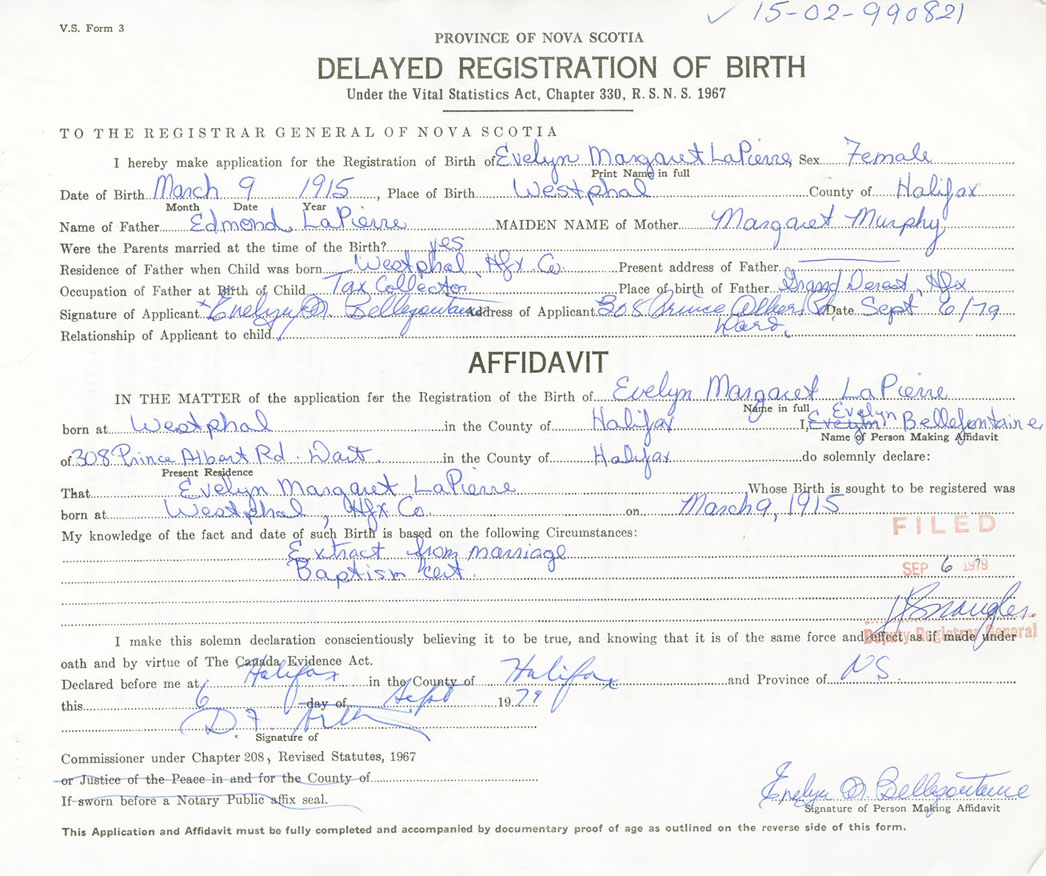 V.S. Form 3
✓ 15-02-990821
PROVINCE OF NOVA SCOTIA
DELAYED REGISTRATION OF BIRTH
Under the Vital Statistics Act, Chapter 330, R.S.N.S. 1967
TO THE REGISTRAR GENERAL OF NOVA SCOTIA
I hereby make application for the Registration of Birth of Evelyn Margaret LaPierre, Sex Female
Print Name in full
Date of Birth March 9 1915, Place of Birth Westphal County of Halifax
Month Date Year
Name of Father Edmond LaPierre MAIDEN NAME of Mother Margaret Murphy
Were the Parents married at the time of the Birth? yes
Residence of Father when Child was born Westphal, Hfx Co. Present address of Father
Occupation of Father at Birth of Child Tax Collector Place of birth of Father Grand Desert, Hfx
Signature of Applicant x Evelyn M. Bellefontaine Address of Applicant 308 Prince Albert Rd. Date Sept 6/79
Dart.
Relationship of Applicant to child
AFFIDAVIT
IN THE MATTER of the application for the Registration of the Birth of Evelyn Margaret LaPierre
Name in full
born at Westphal in the County of Halifax I, Evelyn Bellefontaine
Name of Person Making Affidavit
of 308 Prince Albert Rd. Dart. in the County of Halifax do solemnly declare:
Present Residence
That Evelyn Margaret LaPierre Whose Birth is sought to be registered was
born at Westphal, Hfx Co. on March 9, 1915
My knowledge of the fact and date of such Birth is based on the following Circumstances:
FILED
Extract from marriage
Baptism cert.
SEP 6 1979
Deputy Registrar General
I make this solemn declaration conscientiously believing it to be true, and knowing that it is of the same force and effect as if made under
oath and by virtue of The Canada Evidence Act.
Declared before me at Halifax in the County of Halifax and Province of NS.
this 6 day of Sept 1979
D. F.
Signature of
Commissioner under Chapter 208, Revised Statutes, 1967
or Justice of the Peace in and for the County of
If sworn before a Notary Public affix seal.
Evelyn M. Bellefontaine
Signature of Person Making Affidavit
This Application and Affidavit must be fully completed and accompanied by documentary proof of age as outlined on the reverse side of this form.